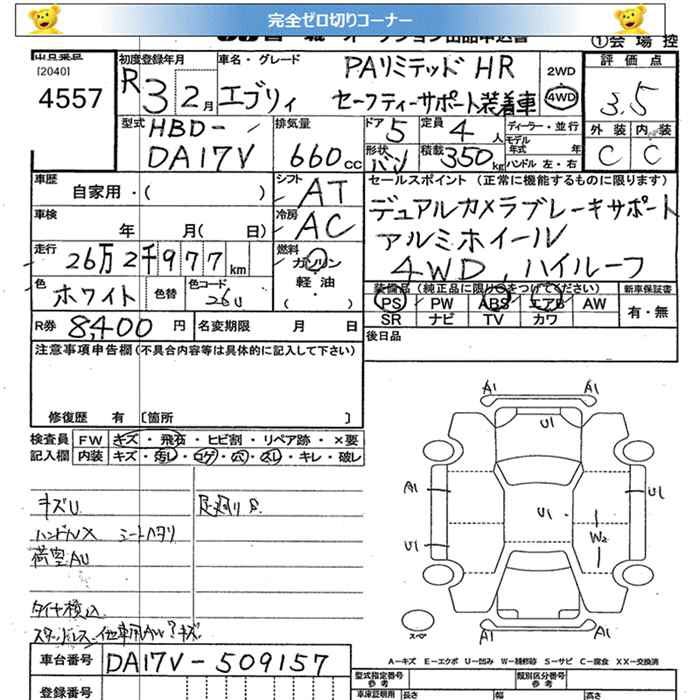 完全ゼロ切りコーナー
オークション出品申込書
①会場控
出品番号
[2040]
4557
初度登録年月
R 3 2月
車名・グレード
PAリミテッド HR
エブリィ セーフティーサポート装着車
2WD
4WD
評価点
3.5
外装 内装
C C
型式
HBD-
DA17V
排気量
660cc
ドア 5
形状 バン
定員 4人
積載 350kg
ディーラー・並行
モデル年式 年
ハンドル 左・右
車歴
自家用・( )
シフト
AT
車検
年 月( 日)
冷房
AC
走行
26万2千977km
燃料
ガソリン
軽・油
( )
色
ホワイト
色替
色コード
26U
セールスポイント (正常に機能するものに限ります)
デュアルカメラブレーキサポート
アルミホイール
4WD, ハイルーフ
装備品 (純正品に限り○をつけてください)
PS PW ABS エアB AW
SR ナビ TV カワ
新車保証書
有・無
R券 8,400円
名変期限 月 日
後日品
注意事項申告欄(不具合内容等は具体的に記入して下さい)
修復歴 有 〔箇所 〕
検査員
記入欄
FW キズ・飛石・ヒビ割・リペア跡・×要
内装 キズ・汚レ・コゲ・穴・スレ・キレ・破レ
キズU
足廻りS
ハンドルX シートハタリ
荷室AU
タイヤ積込
A1 A1
U1
A1 U1
U1
U1 W2
A1 A1
スペア
A-キズ E-エクボ U-凹み W-補修跡 S-サビ C-腐食 XX-交換済
車台番号 DA17V-509157
登録番号
型式指定番号
参考
類別区分番号
参考
車庫証明用
参考
長さ
幅
高さ